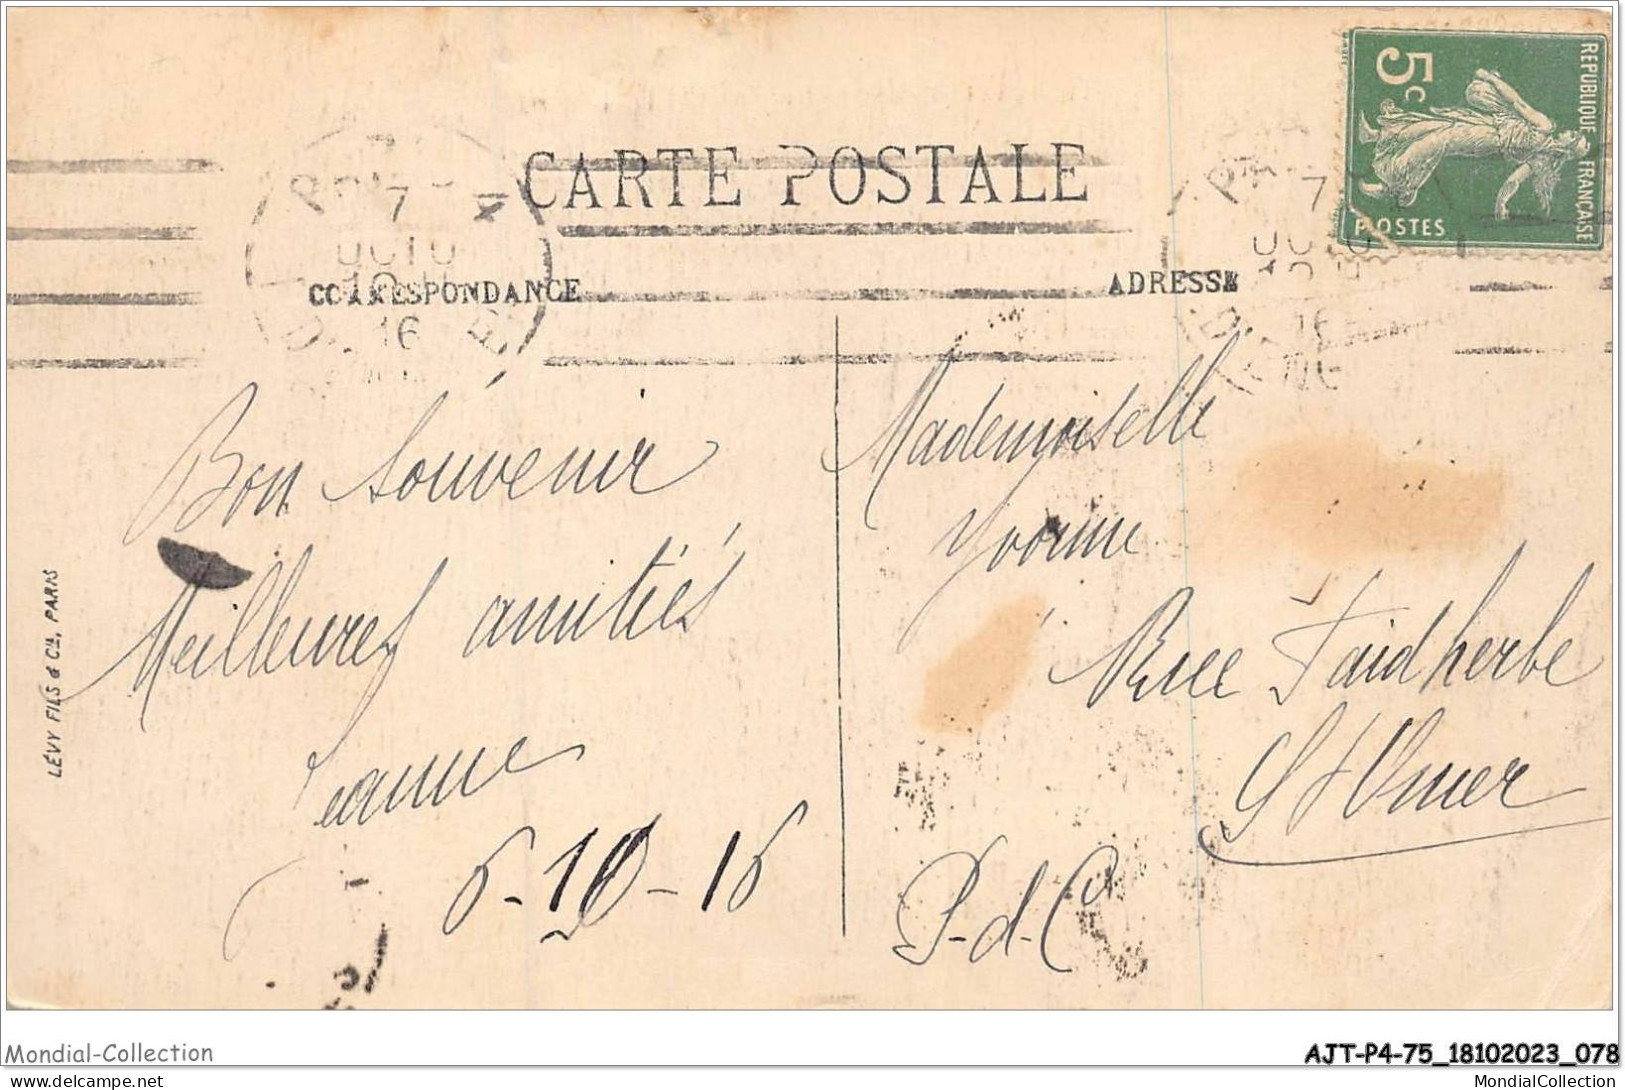 CARTE POSTALE
CORRESPONDANCE
ADRESSE
REPUBLIQUE FRANÇAISE
5c
POSTES
7
16
7
16
Bon souvenir
Meilleures amitiés
Jeanne
6-10-16
Mademoiselle
Yvonne
Rue Faidherbe
St Omer
P-d-C
LÉVY FILS & Cie, PARIS
Mondial-Collection
AJT-P4-75_18102023_078
delcampe.net
MondialCollection